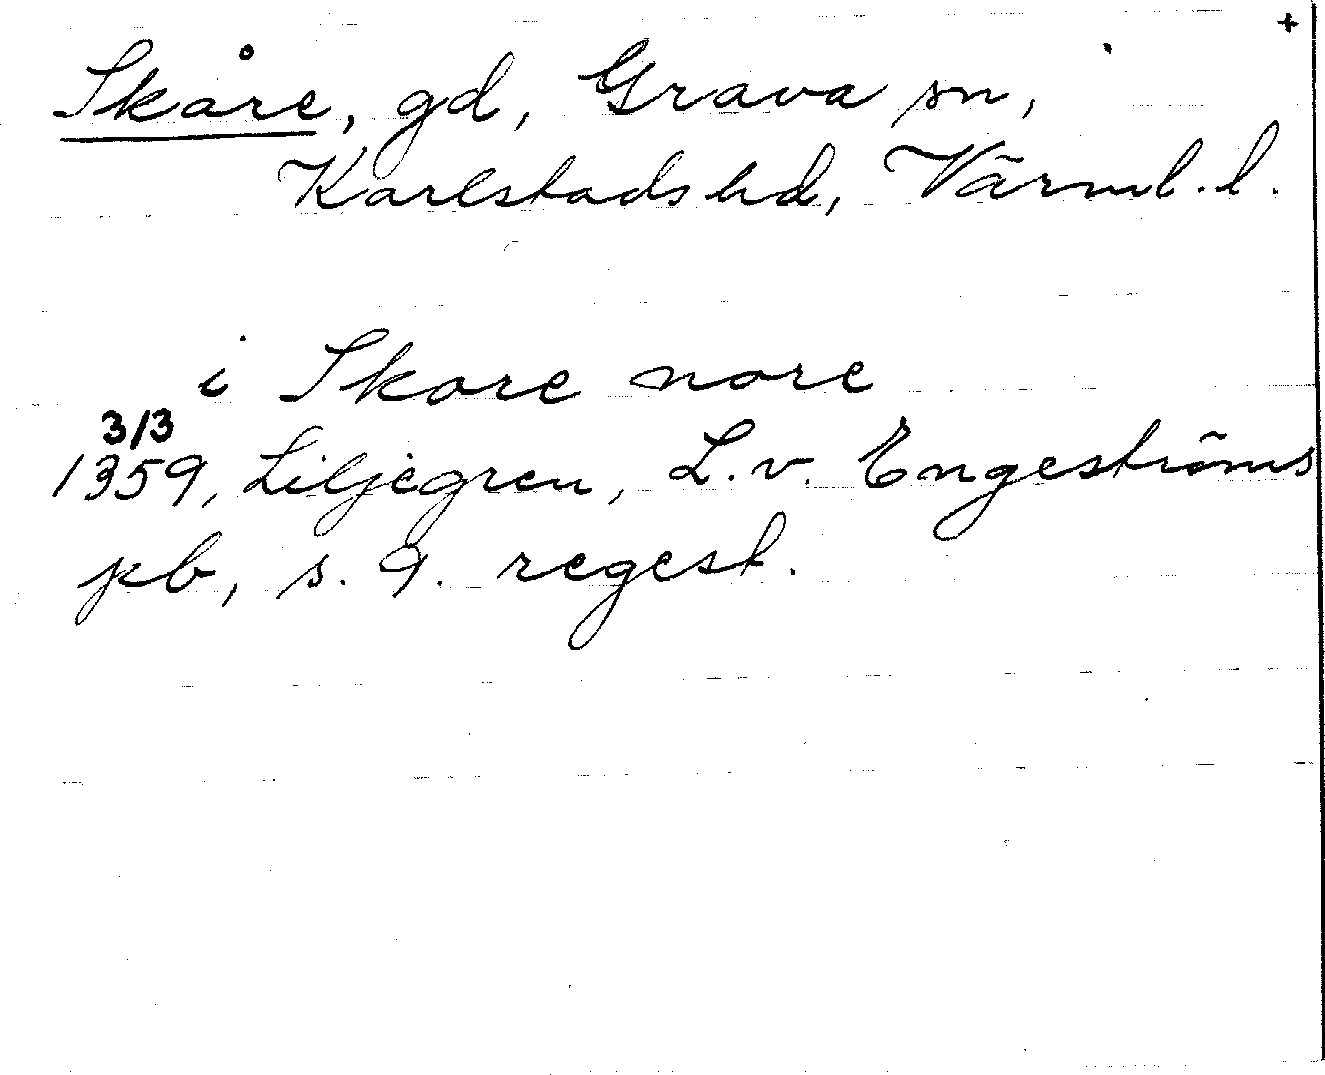 +
Skåre, gd, Grava sn,
Karlstads hd, Värml. l.
i Skore nore
3/3
1359, Liljegren, L. v. Engeströms
pb, s. 9. regest.